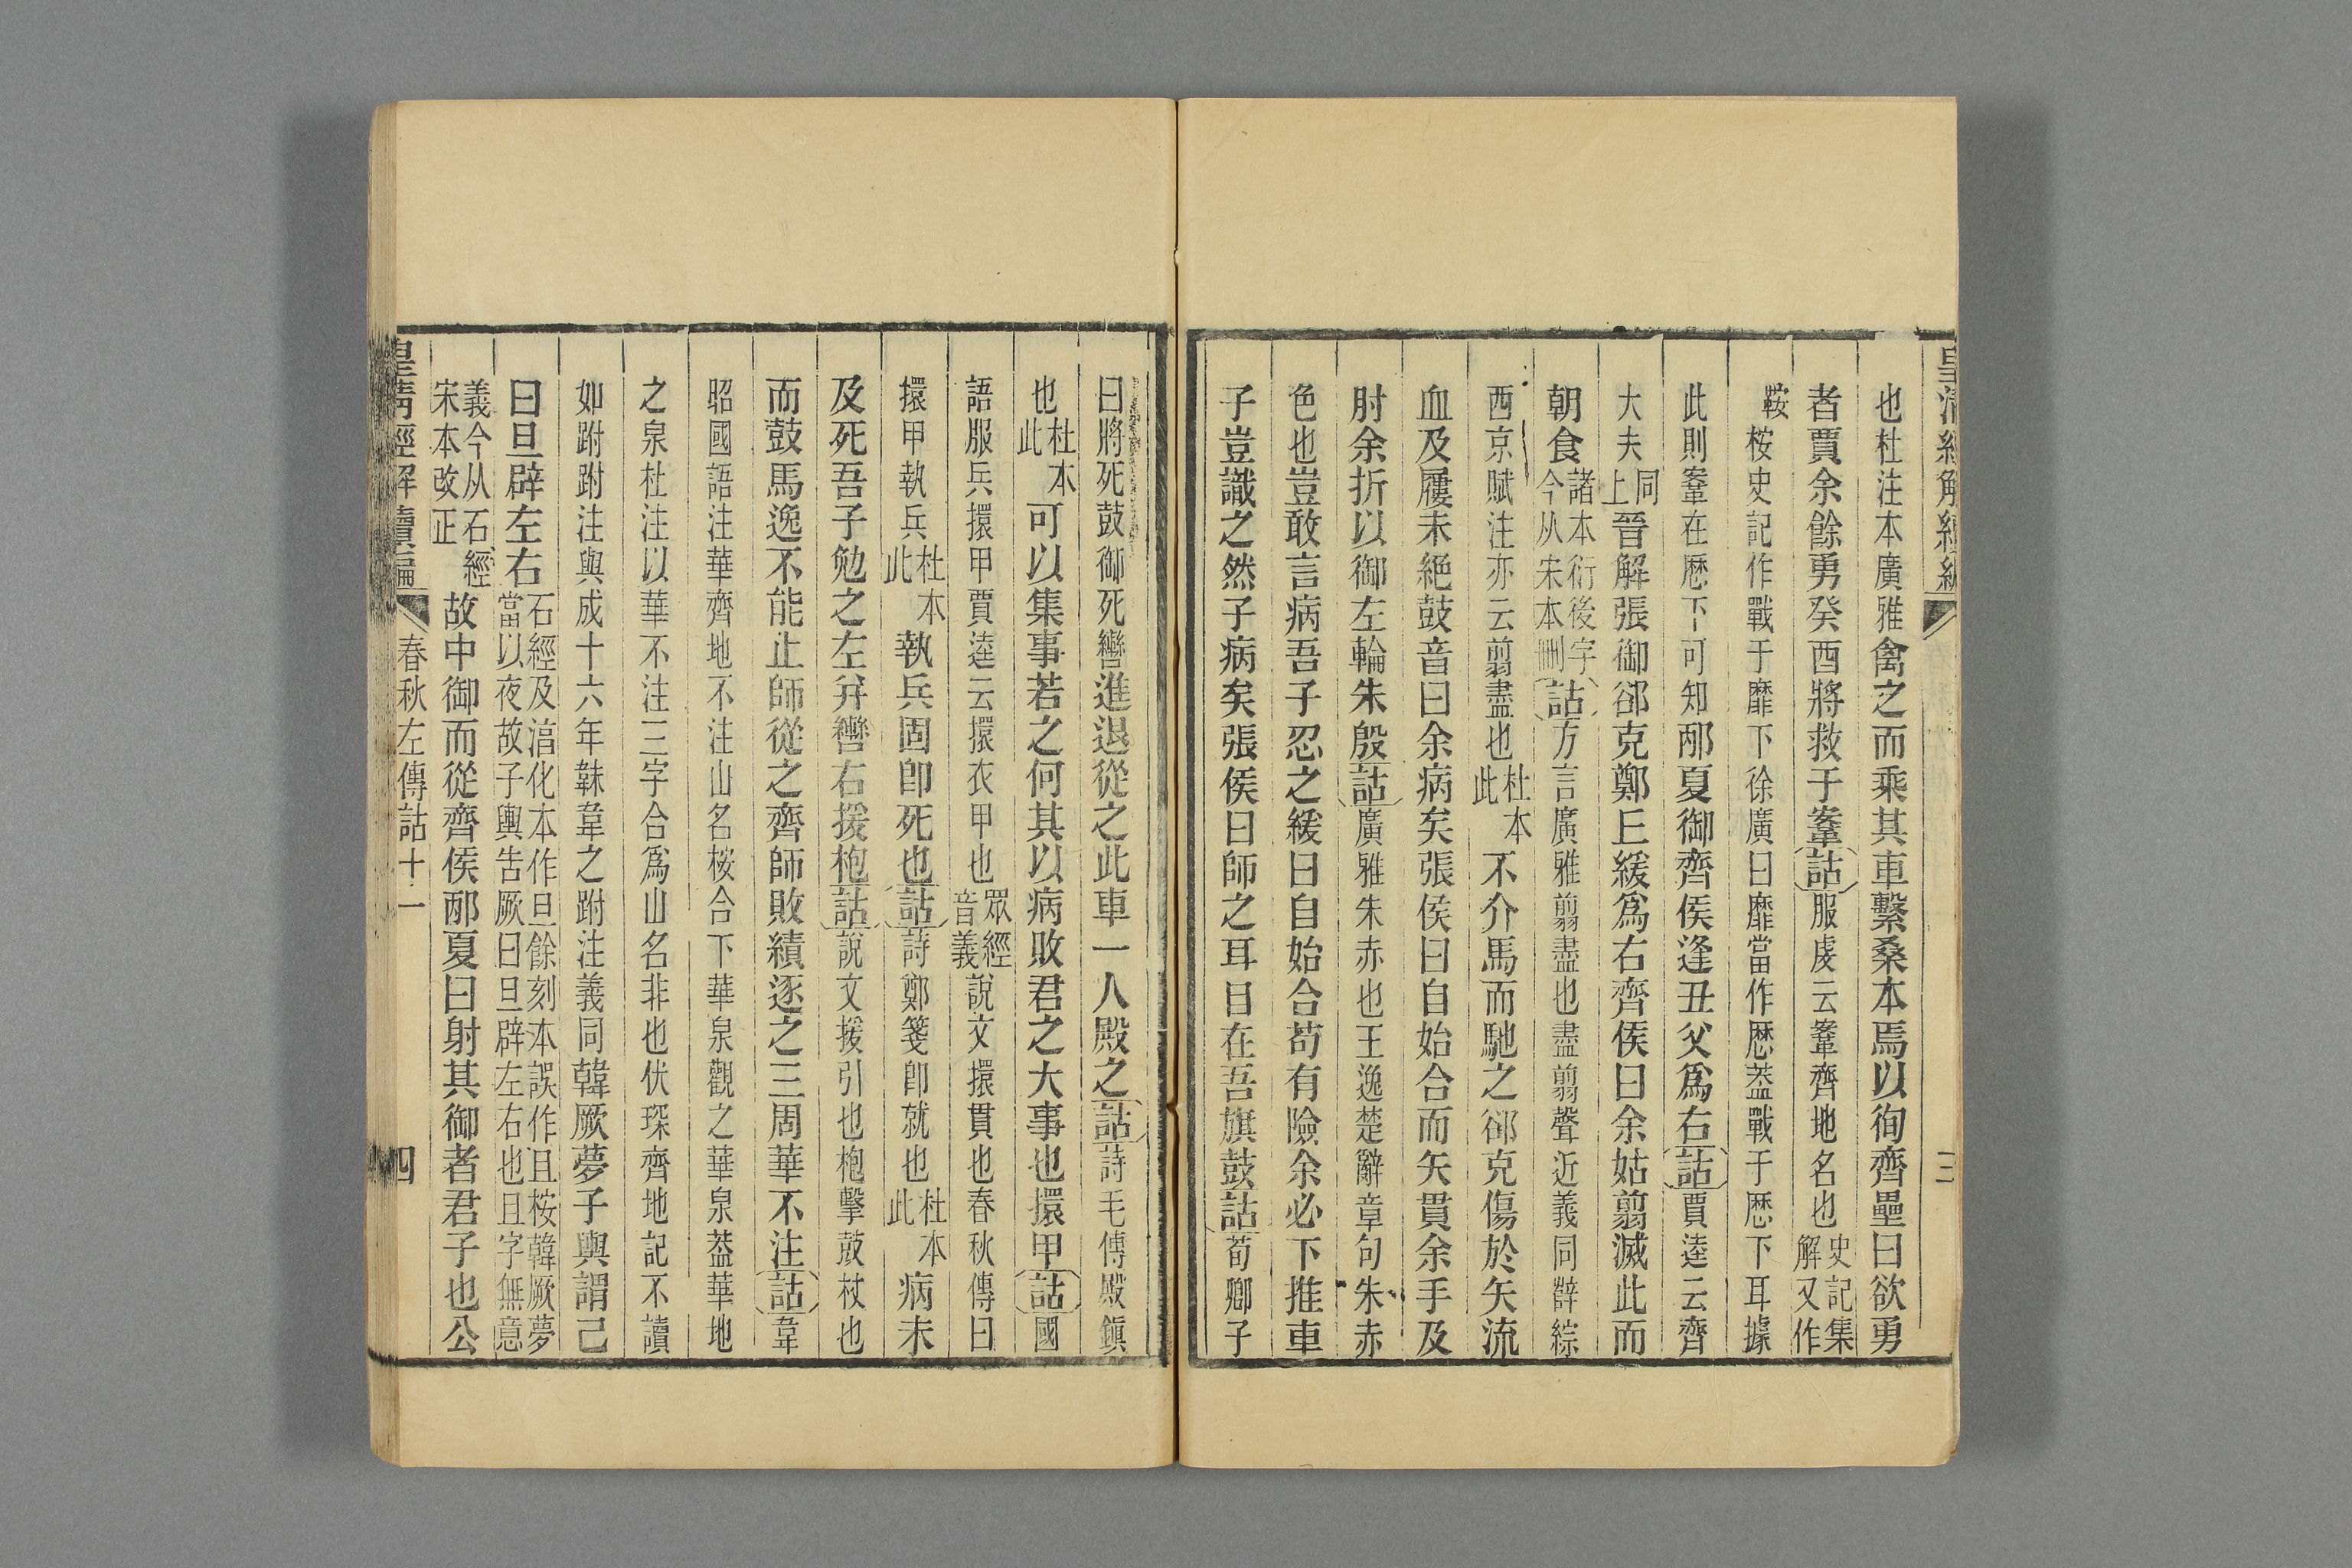 皇清經解續編 三
也杜注本廣雅禽之而乘其車繫桑本焉以徇齊壘曰欲勇
者賈余餘勇癸酉將救于鞌詁服虔云鞌齊地名也史記集解又作
鞍桉史記作戰于靡下徐廣曰靡當作歷葢戰于歷下耳據
此則鞌在歷下可知邴夏御齊侯逢丑父爲右詁賈逵云齊
大夫同上晉解張御郤克鄭丘緩爲右齊侯曰余姑翦滅此而
朝食諸本衍後字今从宋本刪詁方言廣雅翦盡也盡翦聲近義同薛綜
西京賦注亦云翦盡也杜本此不介馬而馳之郤克傷於矢流
血及屨未絕鼓音曰余病矣張侯曰自始合而矢貫余手及
肘余折以御左輪朱殷詁廣雅朱赤也王逸楚辭章句朱赤
色也豈敢言病吾子忍之緩曰自始合苟有險余必下推車
子豈識之然子病矣張侯曰師之耳目在吾旗鼓詁荀卿子
曰將死鼓御死轡進退從之此車一人殿之詁詩毛傳殿鎭
也杜本此可以集事若之何其以病敗君之大事也擐甲詁國
語服兵擐甲賈逵云擐衣甲也眾經音義說文擐貫也春秋傳曰
擐甲執兵杜本此執兵固卽死也詁詩鄭箋卽就也杜本此病未
及死吾子勉之左并轡右援枹詁說文援引也枹擊鼓杖也
而鼓馬逸不能止師從之齊師敗績逐之三周華不注詁韋
昭國語注華齊地不注山名桉合下華泉觀之華泉葢華地
之泉杜注以華不注三字合爲山名非也伏琛齊地記不讀
如跗跗注與成十六年韎韋之跗注義同韓厥夢子輿謂己
曰旦辟左右石經及淳化本作旦餘刻本誤作且桉韓厥夢當以夜故子輿告厥曰旦辟左右也且字無意
義今从石經宋本改正故中御而從齊侯邴夏曰射其御者君子也公
皇清經解續編 春秋左傳詁十一 四